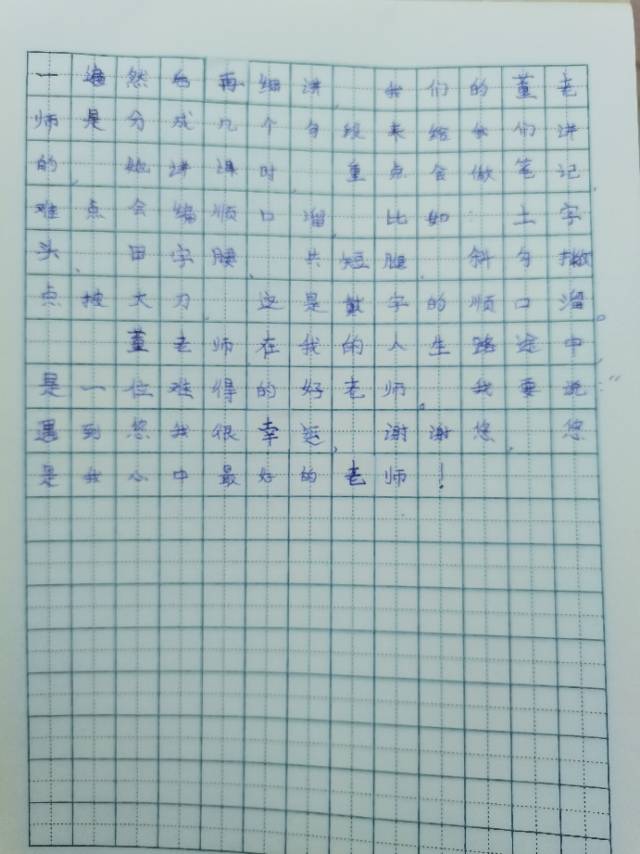 一遍然后再细讲,我们的董老
师是分成几个句段来给我们讲
的,她讲课时,重点会做笔记,
难点会编顺口溜,比如,土字
头,田字腰,共短腿,斜勾撇
点披大刀,这是戴字的顺口溜。
董老师在我的人生路途中
是一位难得的好老师。我要说:“
遇到您我很幸运,谢谢您,您
是我心中最好的老师!